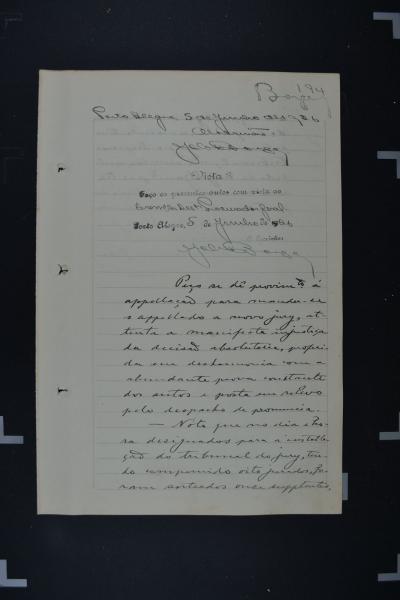 194
Borges
Porto Alegre 5 de Junho de 1926
O Escrivão
Vista
Faço os presentes autos com vista ao
Exmo. Sr. Des. Procurador Geral.
Porto Alegre, 5 de Junho de 1926
O Escrivão
Peço se dê provimto á
appellação para mandar-se
o appellado a novo jury, at-
tenta a manifesta injustiça
da decisão absolutoria, proferi-
da em desharmonia com a
abundante prova constante
dos autos e posta em relevo
pelo despacho de pronuncia.
— Noto que no dia e ho-
ra designados para a installa-
ção do tribunal do jury, ten-
do comparecido oito jurados, fo-
ram sorteados onze supplentes,